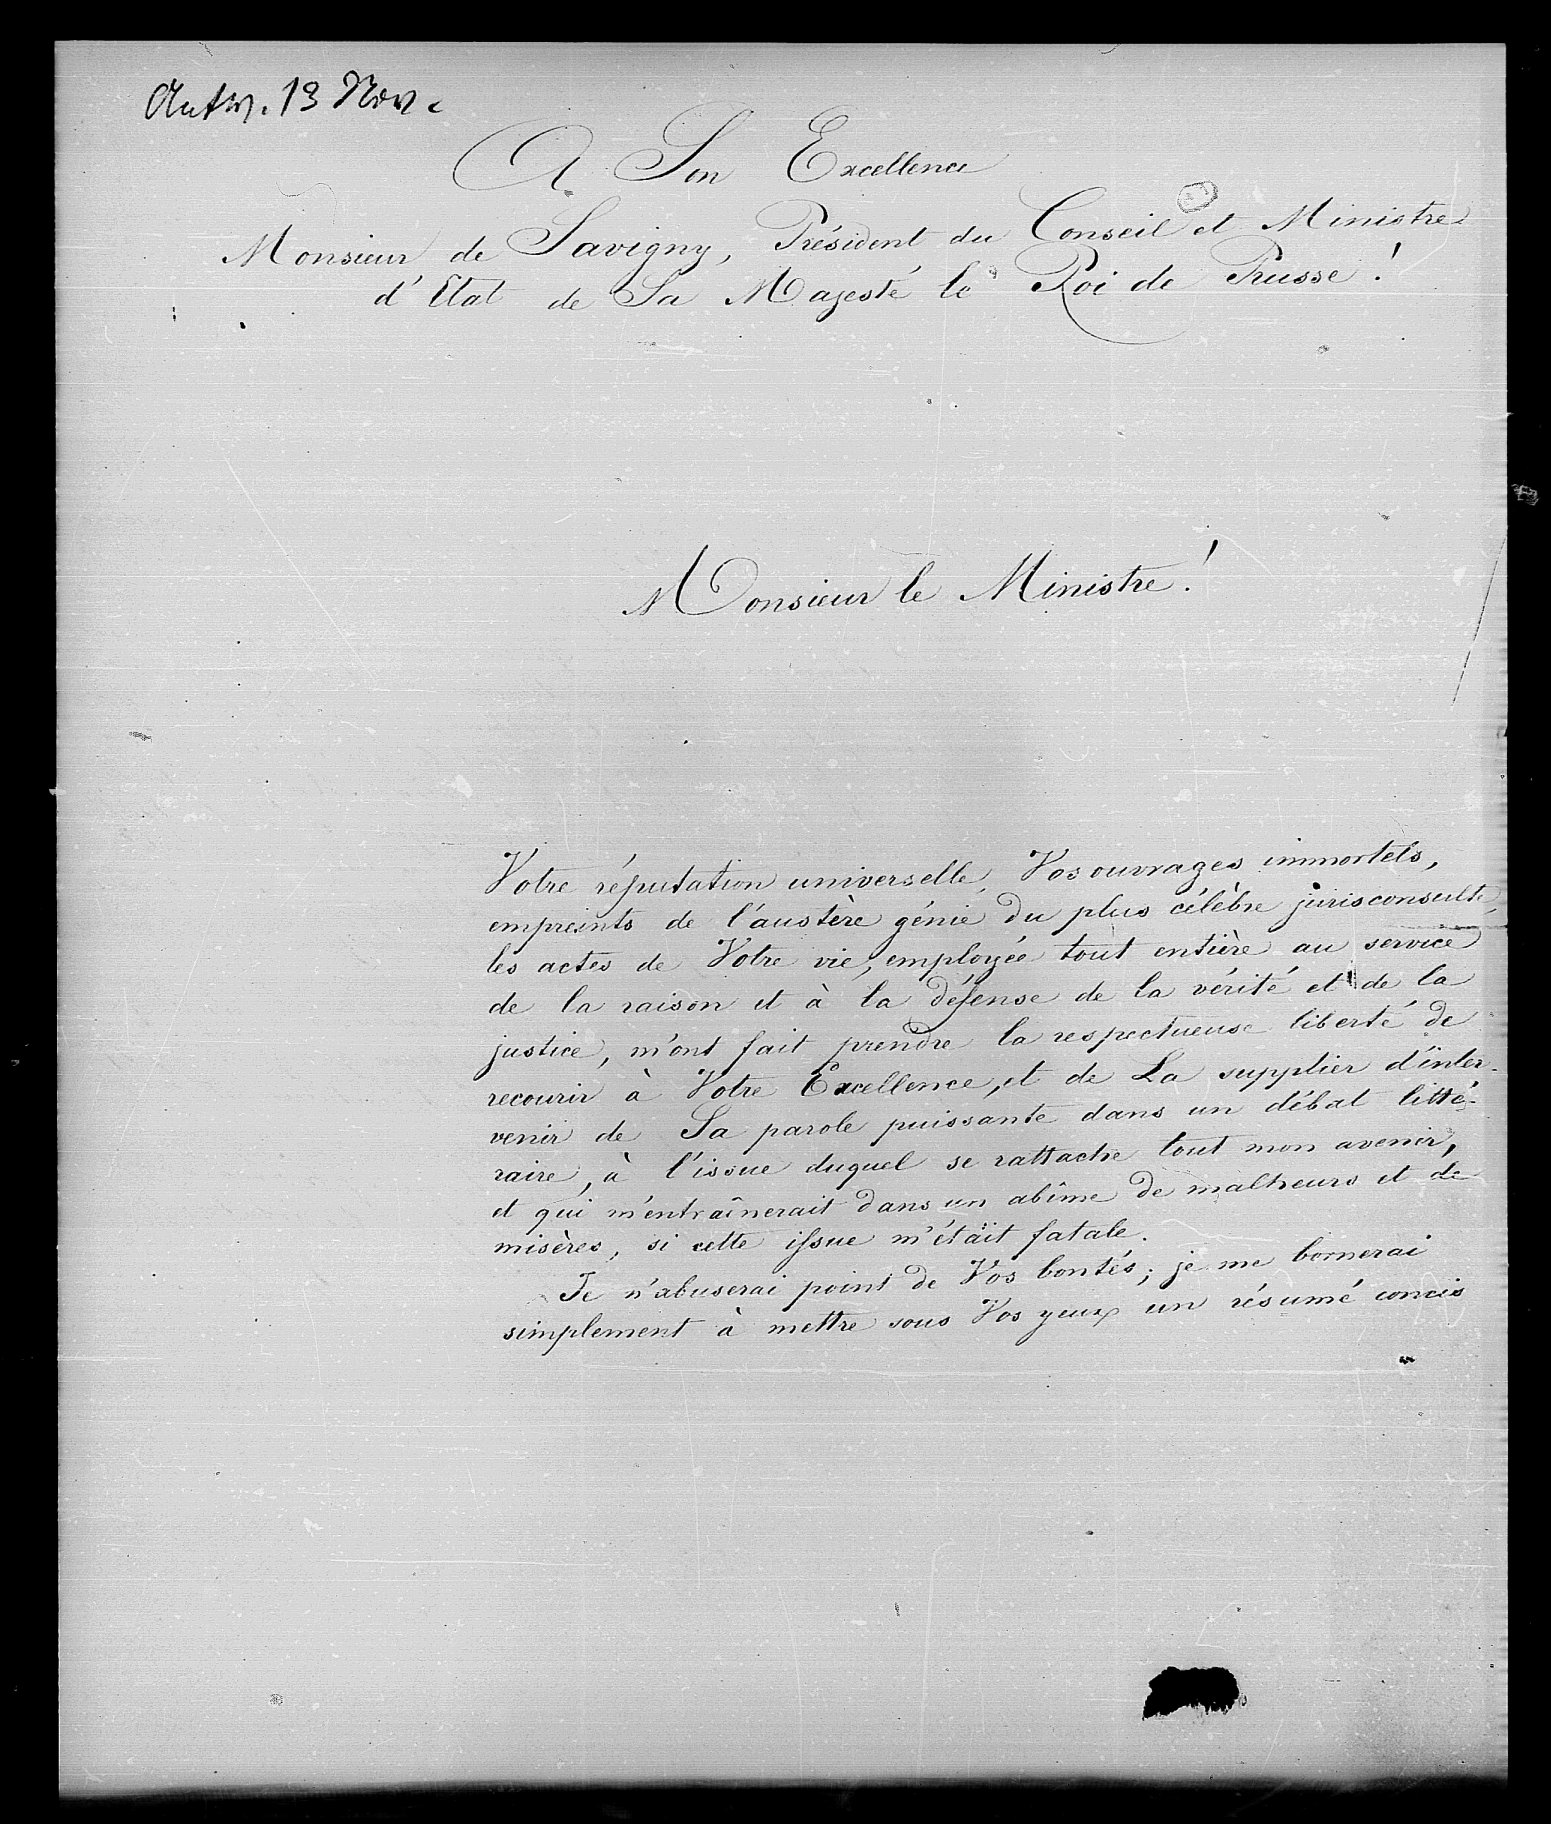 Antw. 13 Nov.
A Son Excellence
Monsieur de Savigny, Président du Conseil et Ministre
d'Etat de Sa Majesté le Roi de Prusse!
Monsieur le Ministre!
Votre réputation universelle, Vos ouvrages immortels,
empreints de l'austère génie du plus célèbre jurisconsulte,
les actes de Votre vie, employée tout entière au service
de la raison et à la défense de la vérité et de la
justice, m'ont fait prendre la respectueuse liberté de
recourir à Votre Excellence, et de La supplier d'inter-
venir de Sa parole puissante dans un débat litté-
raire, à l'issue duquel se rattache tout mon avenir,
et qui m'entraînerait dans un abîme de malheurs et de
misères, si cette issue m'était fatale.
Je n'abuserai point de Vos bontés; je me bornerai
simplement à mettre sous Vos yeux un résumé concis